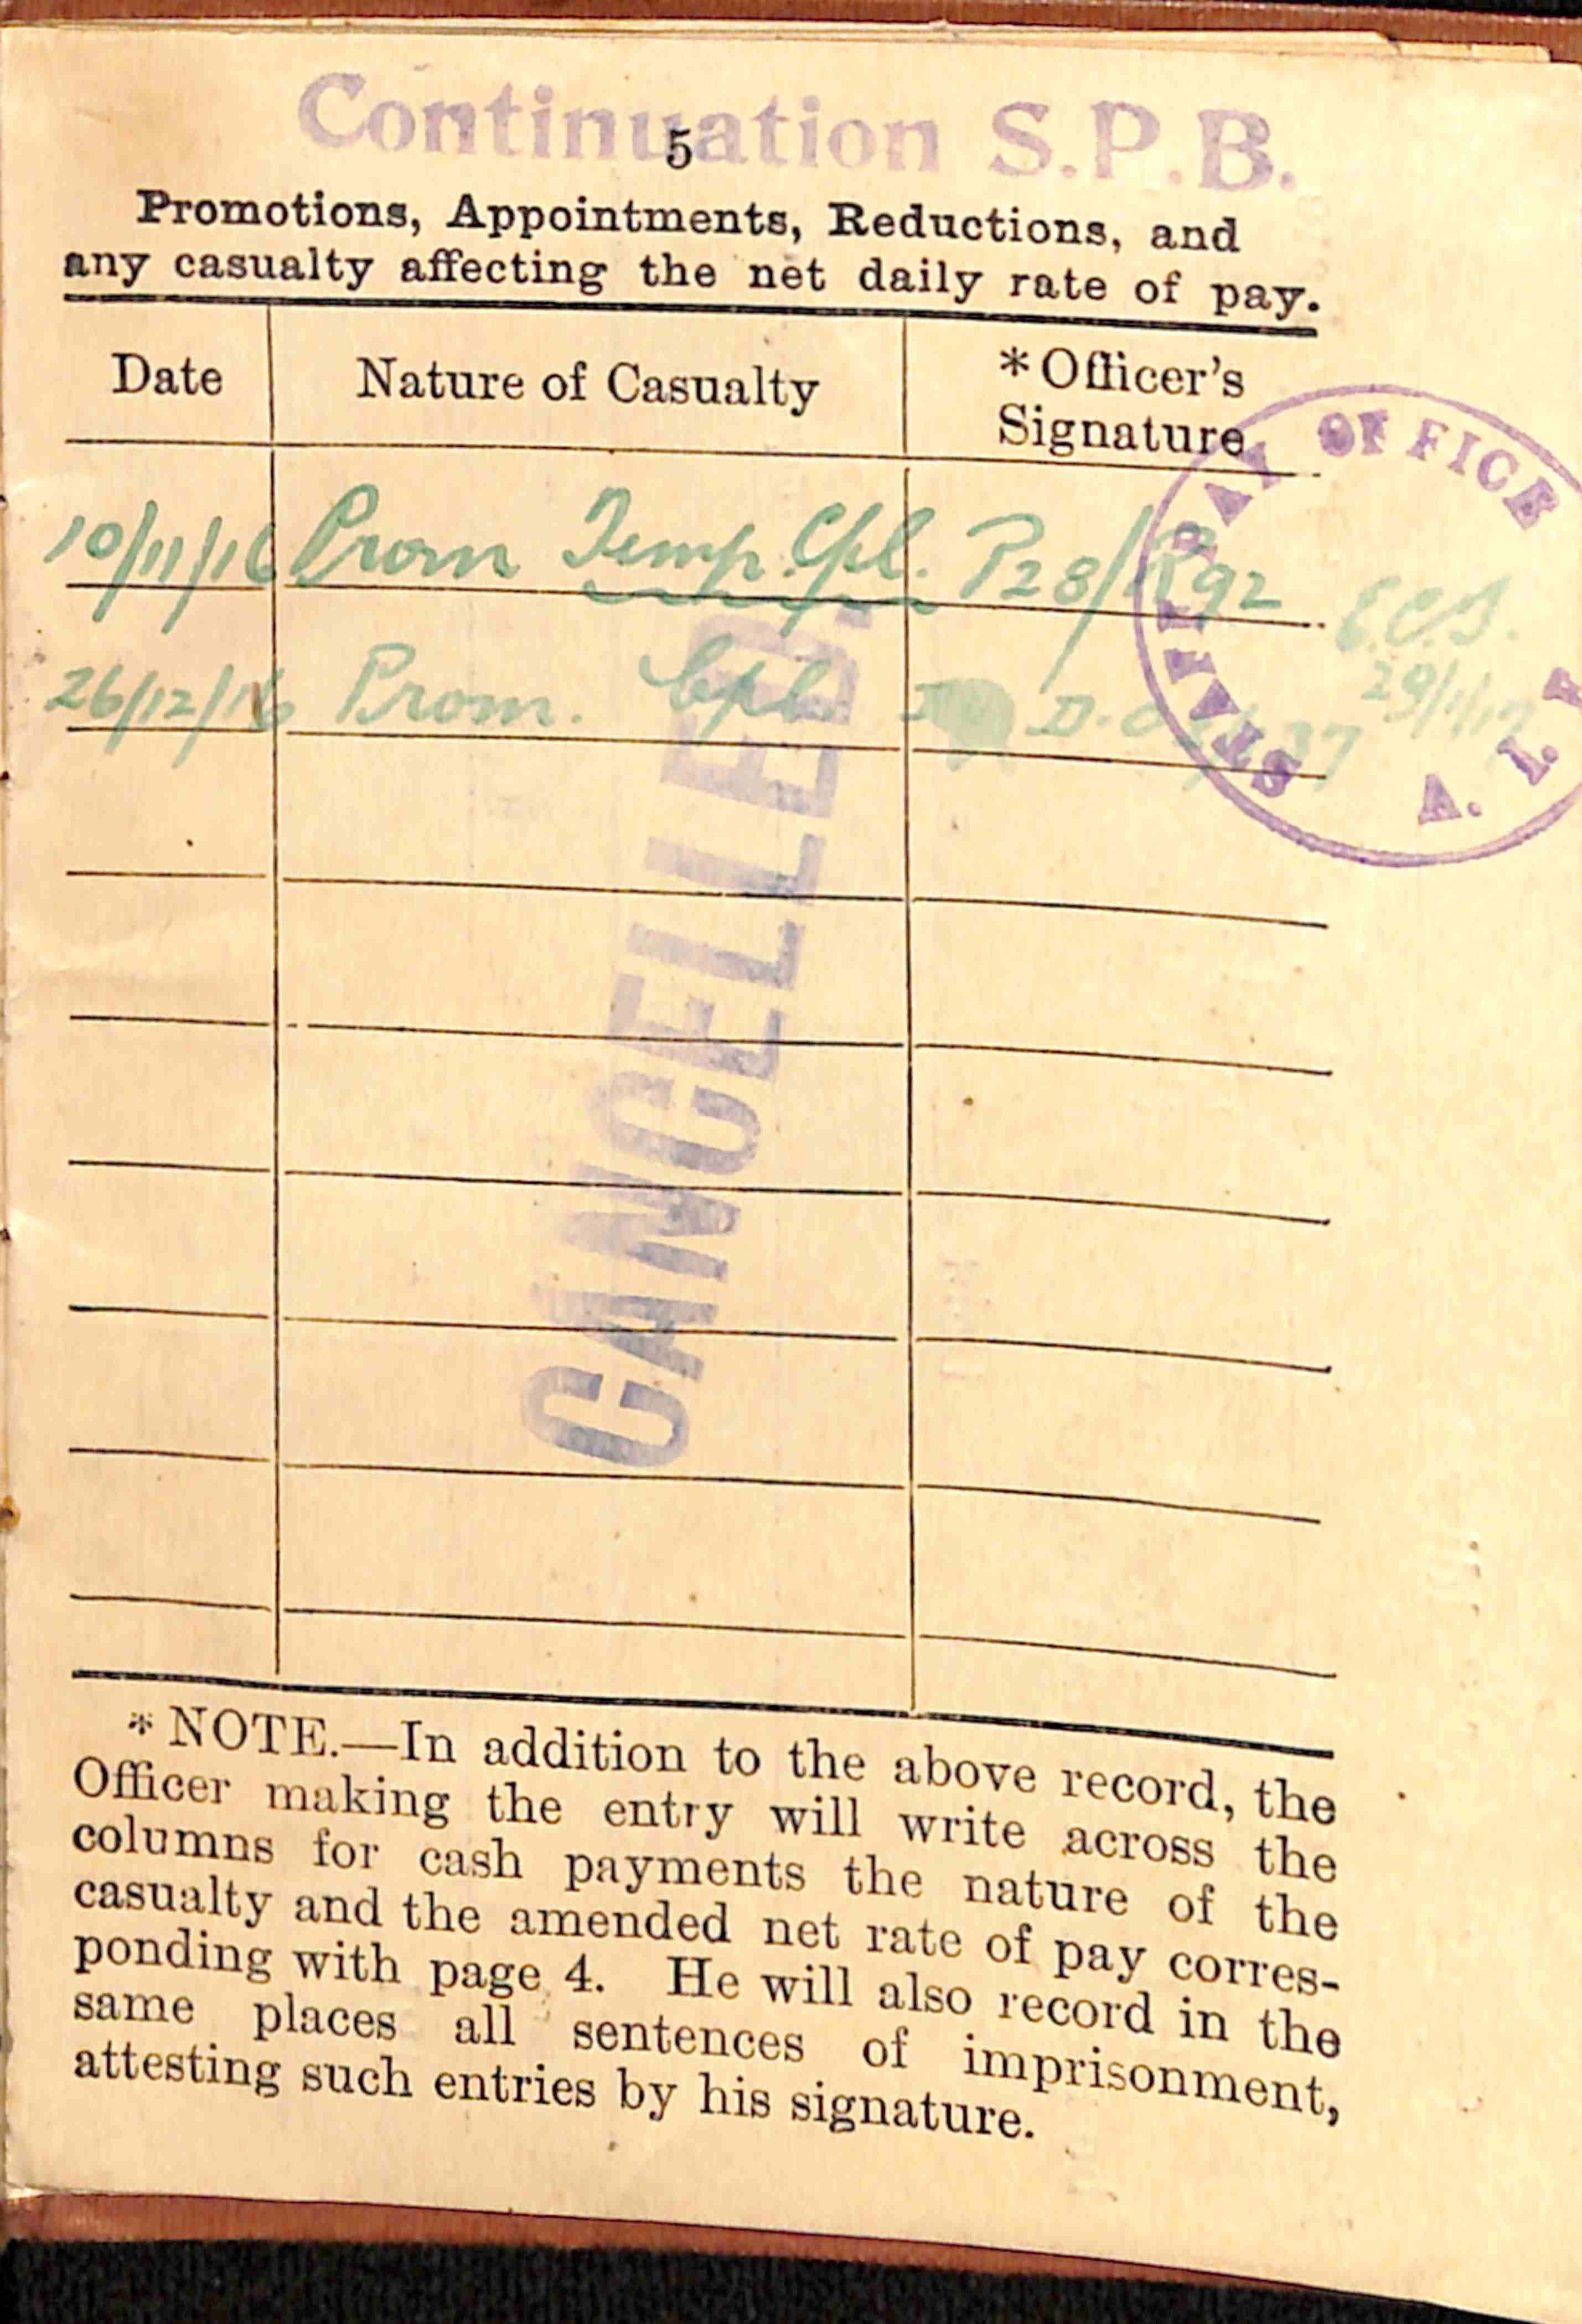 Continuation S.P.B.
5
Promotions, Appointments, Reductions, and
any casualty affecting the net daily rate of pay.
Date Nature of Casualty *Officer's Signature
STAFF PAY OFFICE A.I.F.
10/11/16 Prom Temp. Cpl. P28/R92 E.C.S.
26/12/16 Prom. Cpl. 29/1/17
CANCELLED.
*NOTE.—In addition to the above record, the
Officer making the entry will write across the
columns for cash payments the nature of the
casualty and the amended net rate of pay corres-
ponding with page 4. He will also record in the
same places all sentences of imprisonment,
attesting such entries by his signature.